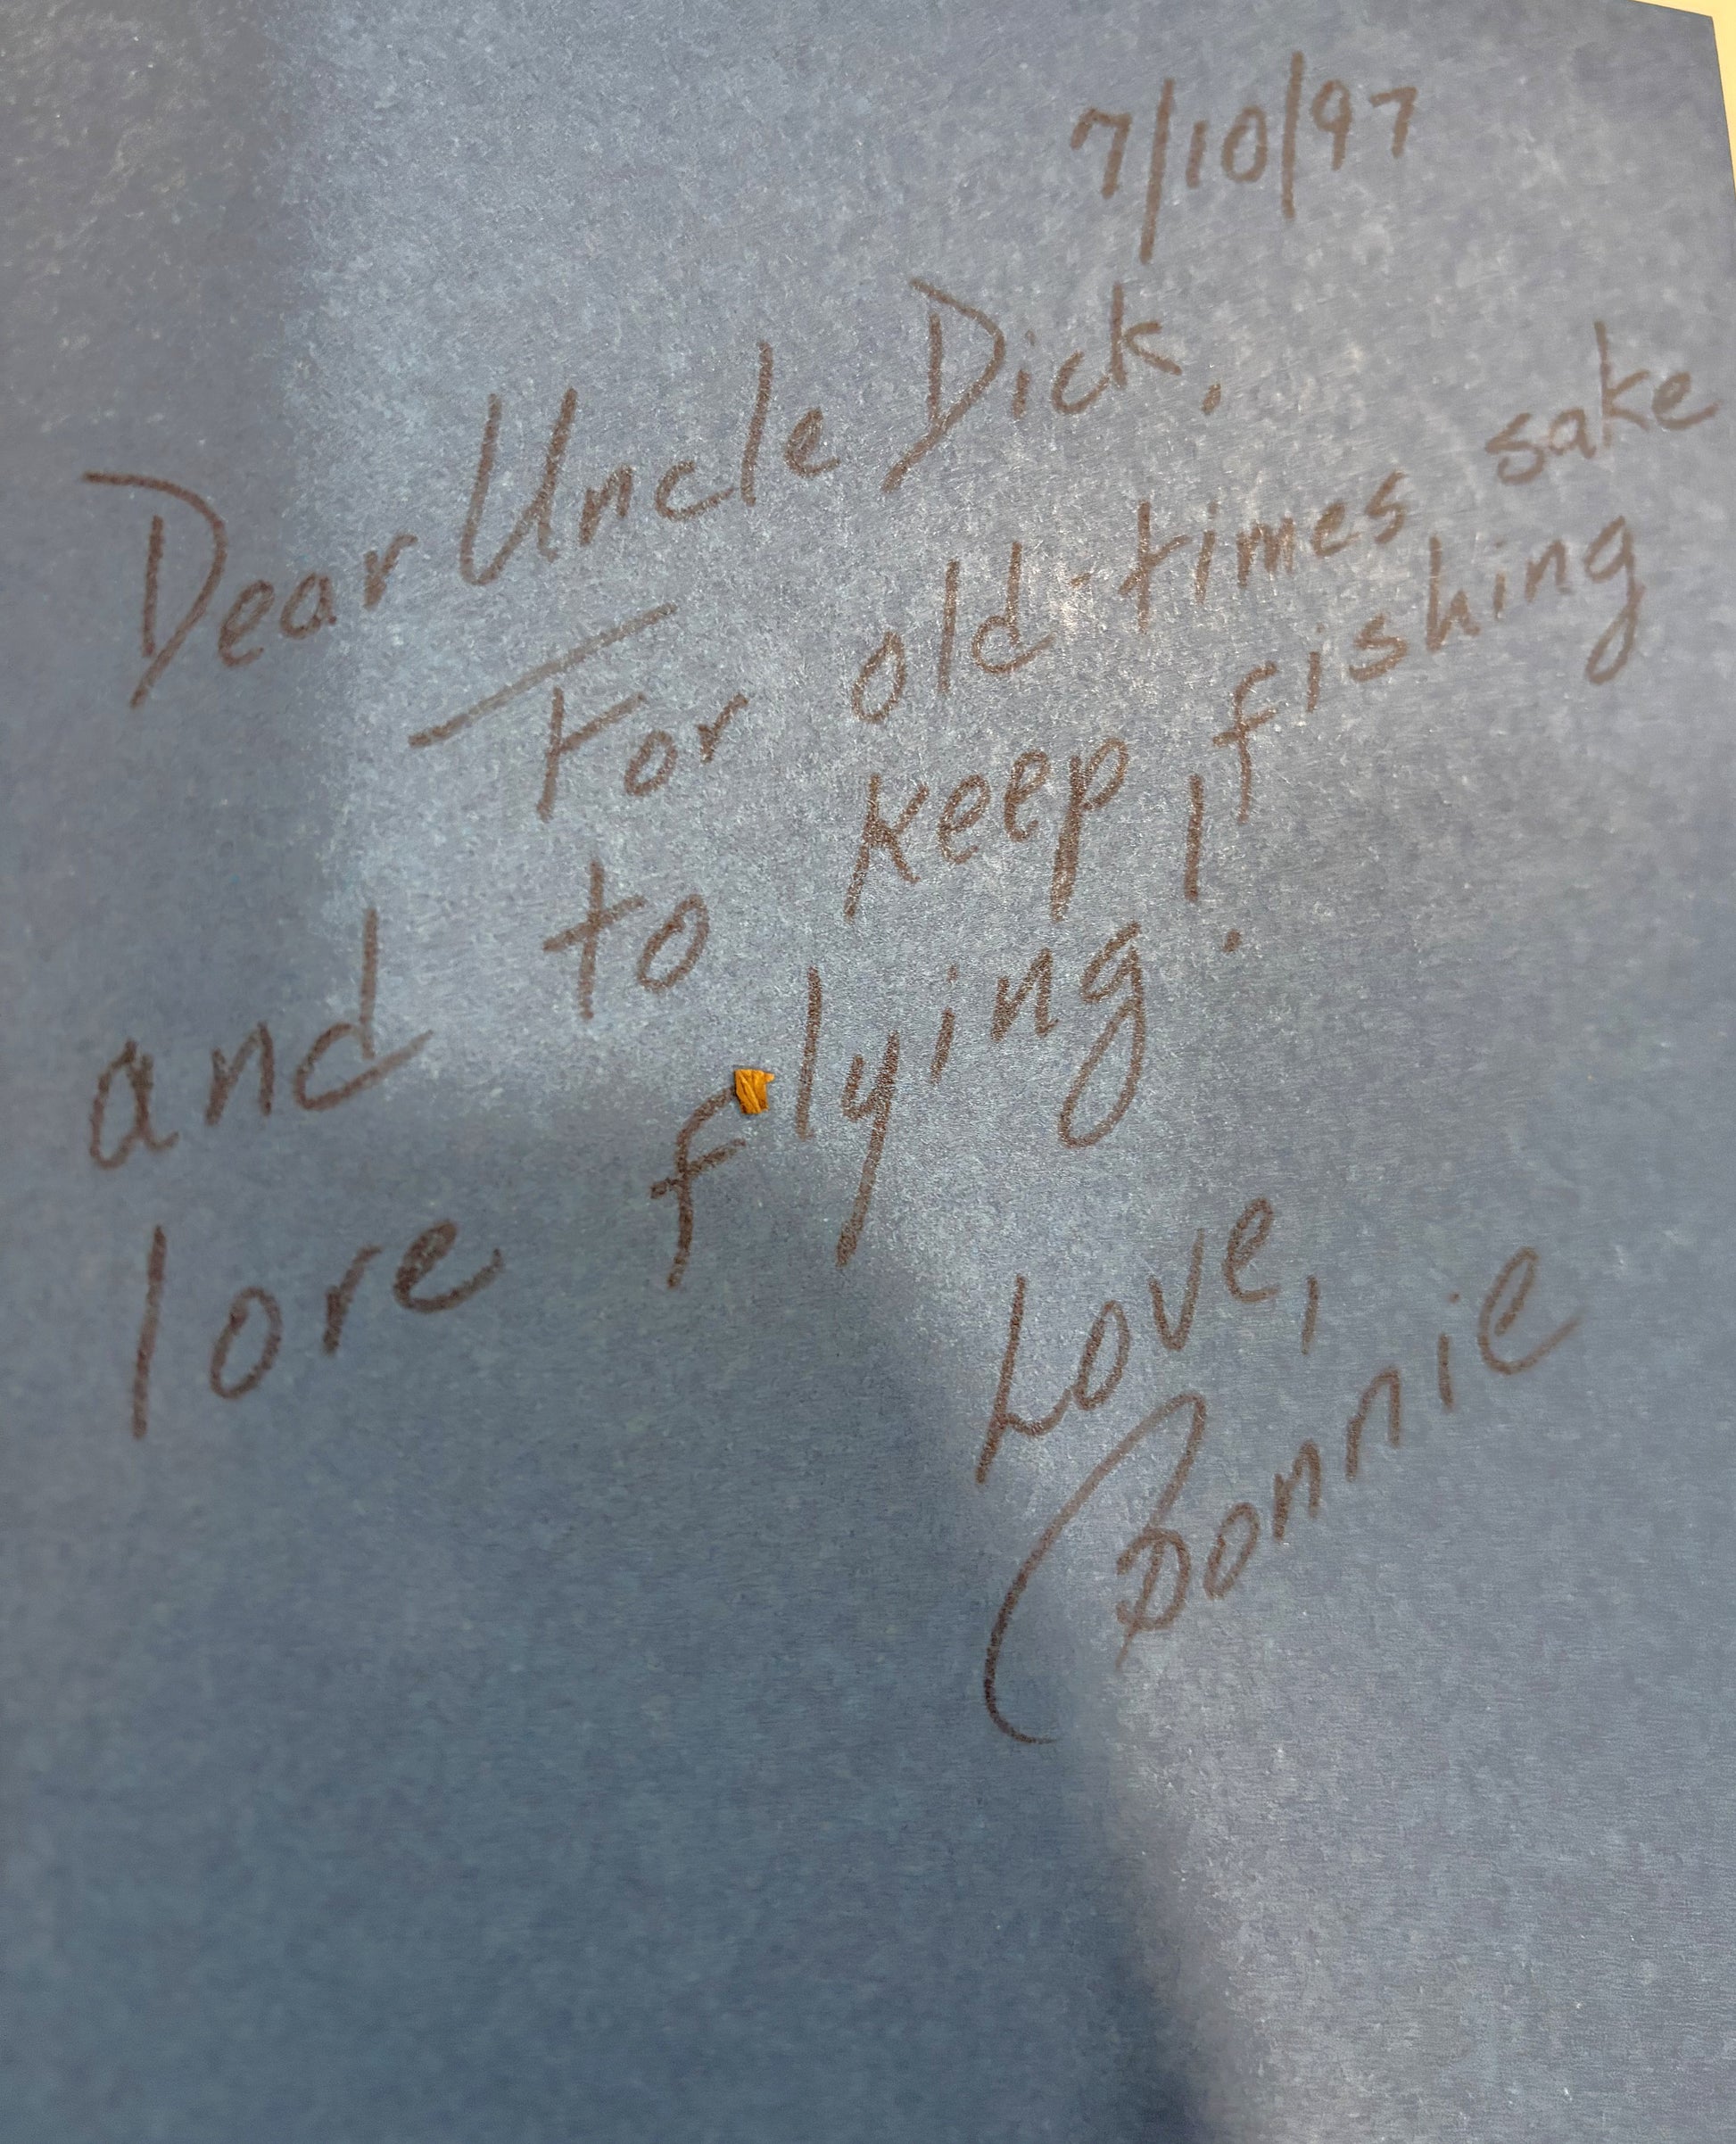 7/10/97
Dear Uncle Dick,
For old-times sake
and to keep fishing
lore flying!
Love,
Bonnie